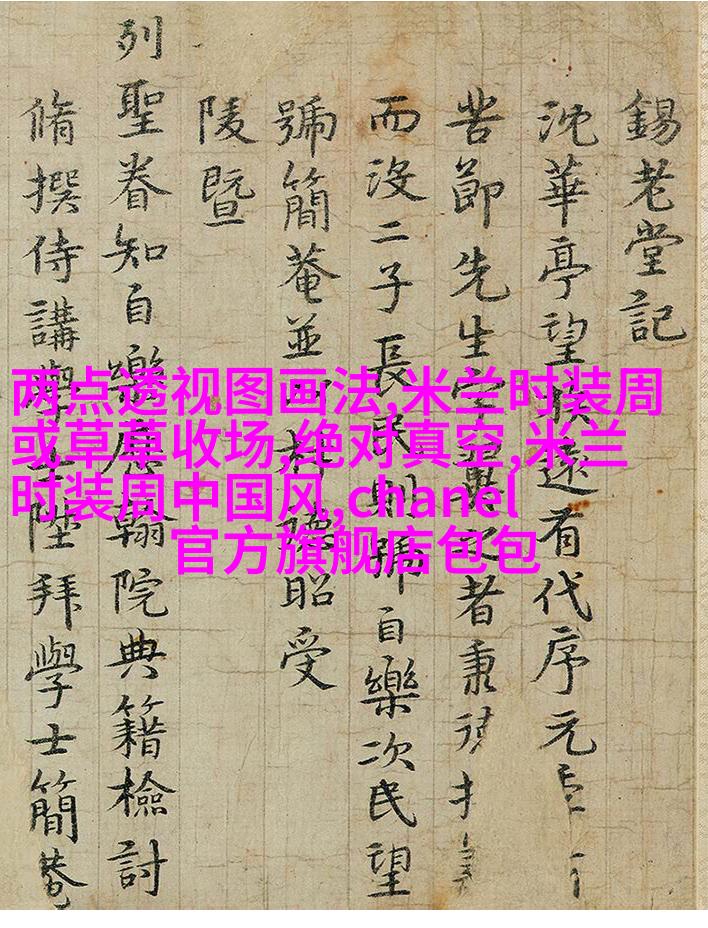 錫老堂記
沈華亭望族遠有代序元
苦節先生者秉
而没二子長民則號自樂次民望
號簡菴並以昭受
陵暨
列聖眷知自樂翰院典籍檢討
脩撰侍講學陞拜學士簡菴
两点透视图画法,米兰时装周
或草草收场,绝对真空,米兰
时装周中国风,chanel
官方旗舰店包包